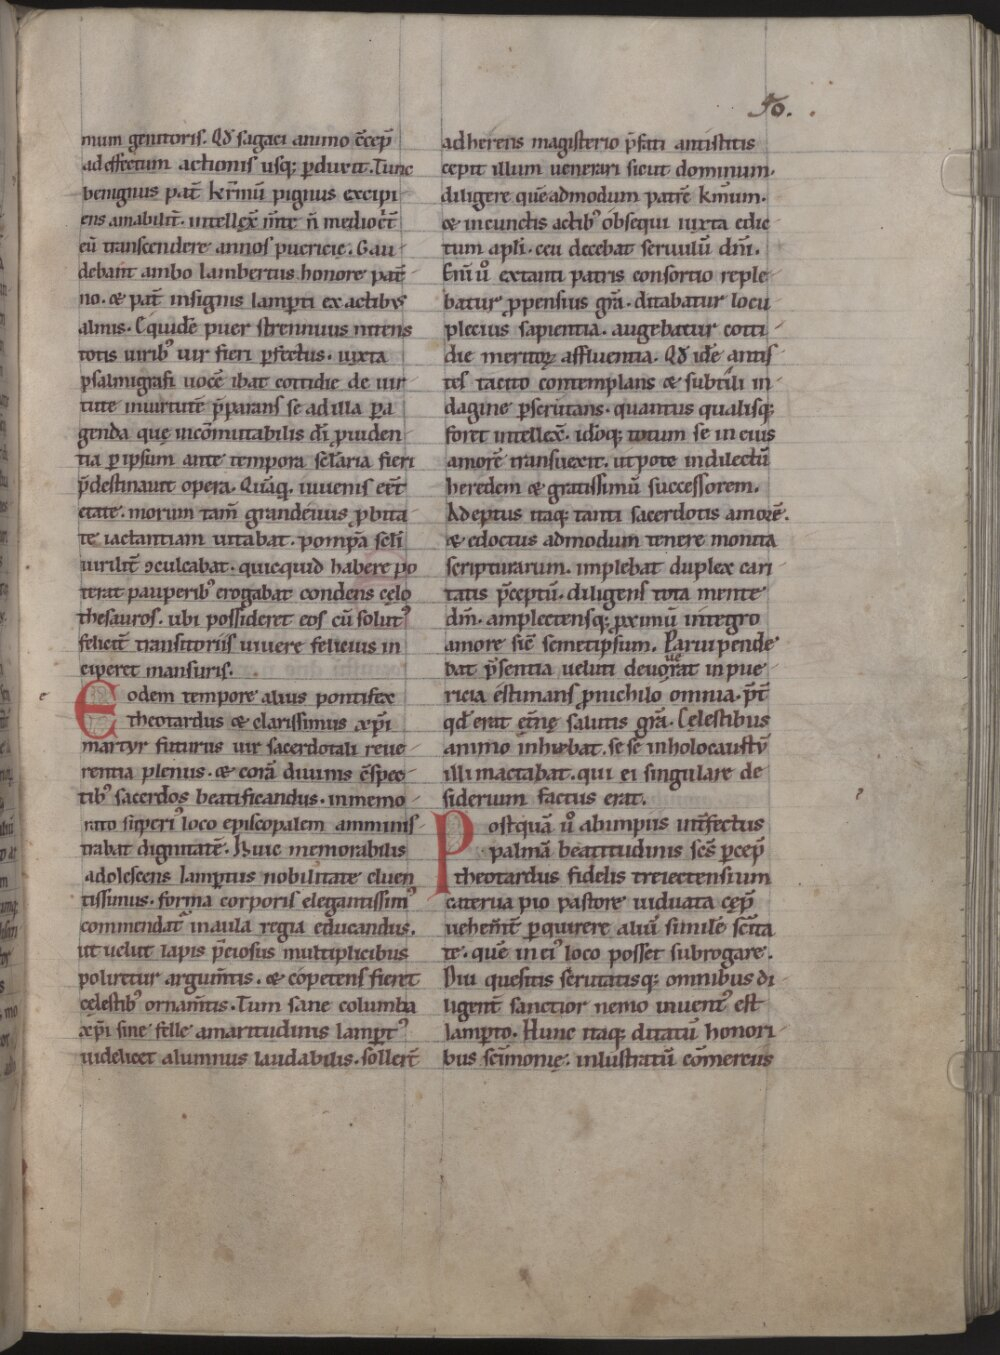 50.
mum genitoris. Qd̄ sagaci animo c̄cep̄
ad effectum actionis usq; ꝑduxit. Tunc
benignus pat̄ kr̄mū pignus excipi
ens amabilit̄. intellex̄ m̄te n̄ mediocrit̄
eū transcendere annos puericię. Gau
debant ambo lambertus honore pat̄
no. & pat̄ insignis lamꝑti ex actibꝰ
almis. Equidē puer strennuus nitens
totis uiribꝰ uir fieri ꝑfectus. iuxta
psalmigrafi uocē ibat cottidie de uir
tute in uirtutē p̄parans se ad illa ꝑa
genda quę incōmutabilis dī ꝓuiden
tia ꝑ ipsum ante tempora sclaria fieri
p̄destinauit opera. Quāq; iuuenis eēt
etate. morum tam̄ grandeuus ꝓbita
te iactantiam uitabat. pompā scli
uirilit̄ ꝯculcabat. quicquid habere po
terat pauperibꝰ erogabat condens cęlo
thesauros. ubi possideret eos cū solutꝰ
felicit̄ transitoriis uiuere felicius in
ciperet mansuris.
Eodem tempore alius pontifex
theotardus & clarissimus xp̄i
martyr futurus uir sacerdotali reue
rentia plenus. & corā diuinis c̄spec
tibꝰ sacerdos beatificandus. inmemo
rato supiꝰ loco episcopalem amminis
trabat dignitatē. Huic memorabilis
adolescens lamꝑtus nobilitate eluen
tissimus. forma corporis elegantissimꝰ
commendat̄ in aula regia educandus.
ut uelut lapis p̄ciosus multiplicibus
poliretur argum̄tis. & cōpetens fieret
cęlestibꝰ ornam̄tis. Tum sane columba
xp̄i sine felle amaritudinis lamꝑtꝰ
uidelicet alumnus laudabilis. sollert̄
adherens magisterio p̄fati antistitis
cepit illum uenerari sicut dominum.
diligere quēadmodum patrē kmum.
& in cunctis actibꝰ obsequi iuxta edic
tum apli. ceu decebat seruulū dn̄i.
Enī u̓ extanti patris consortio reple
batur ꝓpensius gr̄a. ditabatur locu
plecius sapientia. augebatur cotti
die meritoꝝ affluentia. Qd̄ idē antis
tes tacito contemplans & subtili in
dagine ꝑscrutans. quantus qualisq;
foret intellexit. idoq; totum se in eius
amorē transuexit. utpote in dilectū
heredem & gratissimū successorem.
Adeptus itaq; tanti sacerdotis amorē.
& edoctus admodum tenere monita
scripturarum. implebat duplex cari
tatis p̄ceptū. diligens tota mente
dm̄. amplectensq; ꝓximū integro
amore sic̄ semetipsum. Paruipende
bat p̄sentia ueluti deuouerat in pue
ricia ęstimans ꝓ nichilo omnia. p̄t
qd̄ erat ęt̄nę salutis gr̄a. Cęlestibus
animo inhiebat. se se in holocaustū
illi mactabat. qui ei singulare de
siderium factus erat.
Postquā u̓ ab impiis int̄fectus
palmā beatitudinis scs̄ ꝑcep̄
theotardus fidelis treiectensium
caterua pio pastore uiduata cęp̄
uehem̄t ꝑquirere aliū similē sc̄ita
te. quē in eiꝰ loco posset subrogare.
Diu quesitis scrutatisq; omnibus di
ligent̄ sanctior nemo inuentꝰ est
lamꝑto. Hunc itaq; ditatū honori
bus sc̄imonię. inlustratū cōmercius